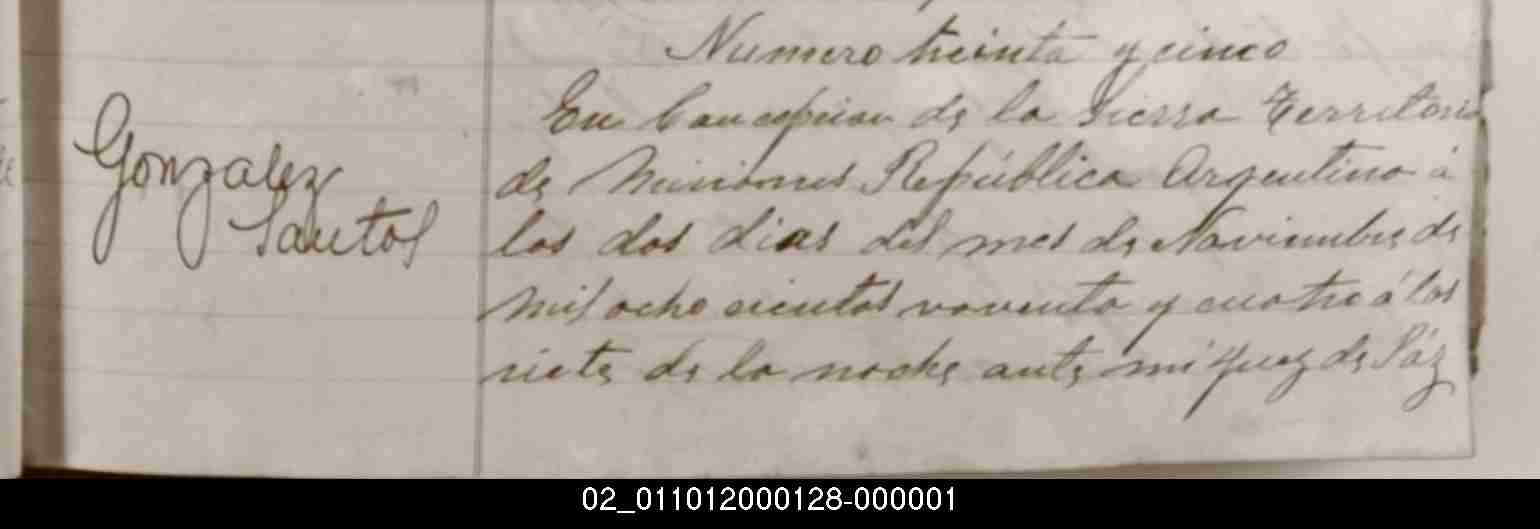 Numero treinta y cinco
Gonzalez
Santos
En Concepcion de la Sierra Territorio
de Misiones República Argentina á
los dos dias del mes de Noviembre de
mil ocho cientos noventa y cuatro á las
siete de la noche ante mi Juez de Páz
02_011012000128-000001